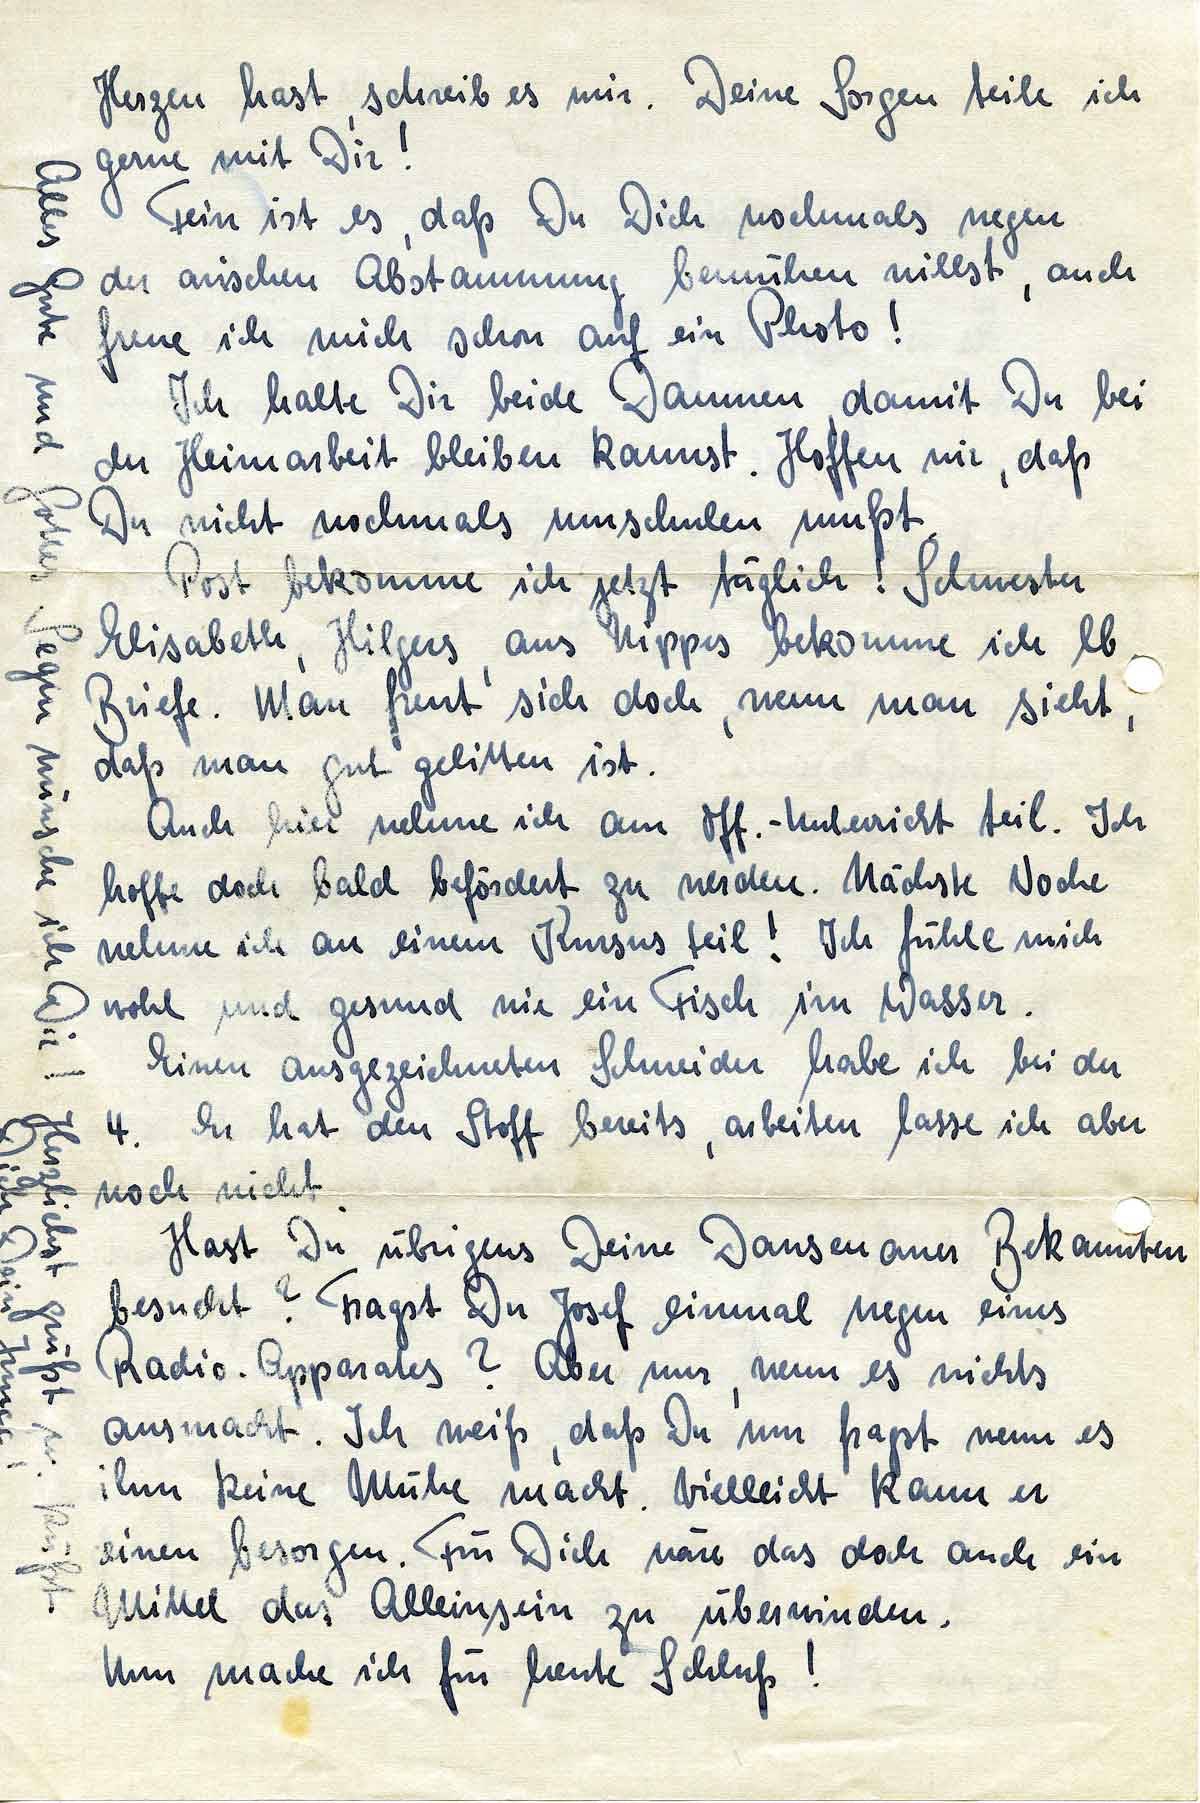 Herzen hast, schreib es mir. Deine Sorgen teile ich
gerne mit Dir!
Fein ist es, daß Du Dich nochmals wegen
der arischen Abstammung bemühen willst, auch
freue ich mich schon auf ein Photo!
Ich halte Dir beide Daumen, damit Du bei
der Heimarbeit bleiben kannst. Hoffen wir, daß
Du nicht nochmals umschulen mußt.
Post bekomme ich jetzt täglich! Schwester
Elisabeth, Hilgers, aus Nippes bekomme ich lb.
Briefe. Man freut sich doch, wenn man sieht,
daß man gut gelitten ist.
Auch hier nehme ich am Off.-Unterricht teil. Ich
hoffe doch bald befördert zu werden. Nächste Woche
nehme ich an einem Kursus teil! Ich fühle mich
wohl und gesund wie ein Fisch im Wasser.
Einen ausgezeichneten Schneider habe ich bei der
4. Er hat den Stoff bereits, arbeiten lasse ich aber
noch nicht.
Hast Du übrigens Deine Dausenauer Bekannten
besucht? Fragst Du Josef einmal wegen eines
Radio-Apparates? Aber nur, wenn es nichts
ausmacht. Ich weiß, daß Du nur fragst wenn es
ihm keine Mühe macht. Vielleicht kann er
einen besorgen. Für Dich wäre das doch auch ein
Mittel das Alleinsein zu überwinden.
Nun mache ich für heute Schluß!
Alles Gute und Gottes Segen wünsche ich Dir!
Herzlichst grüßt u. küßt
Dich Dein Junge!